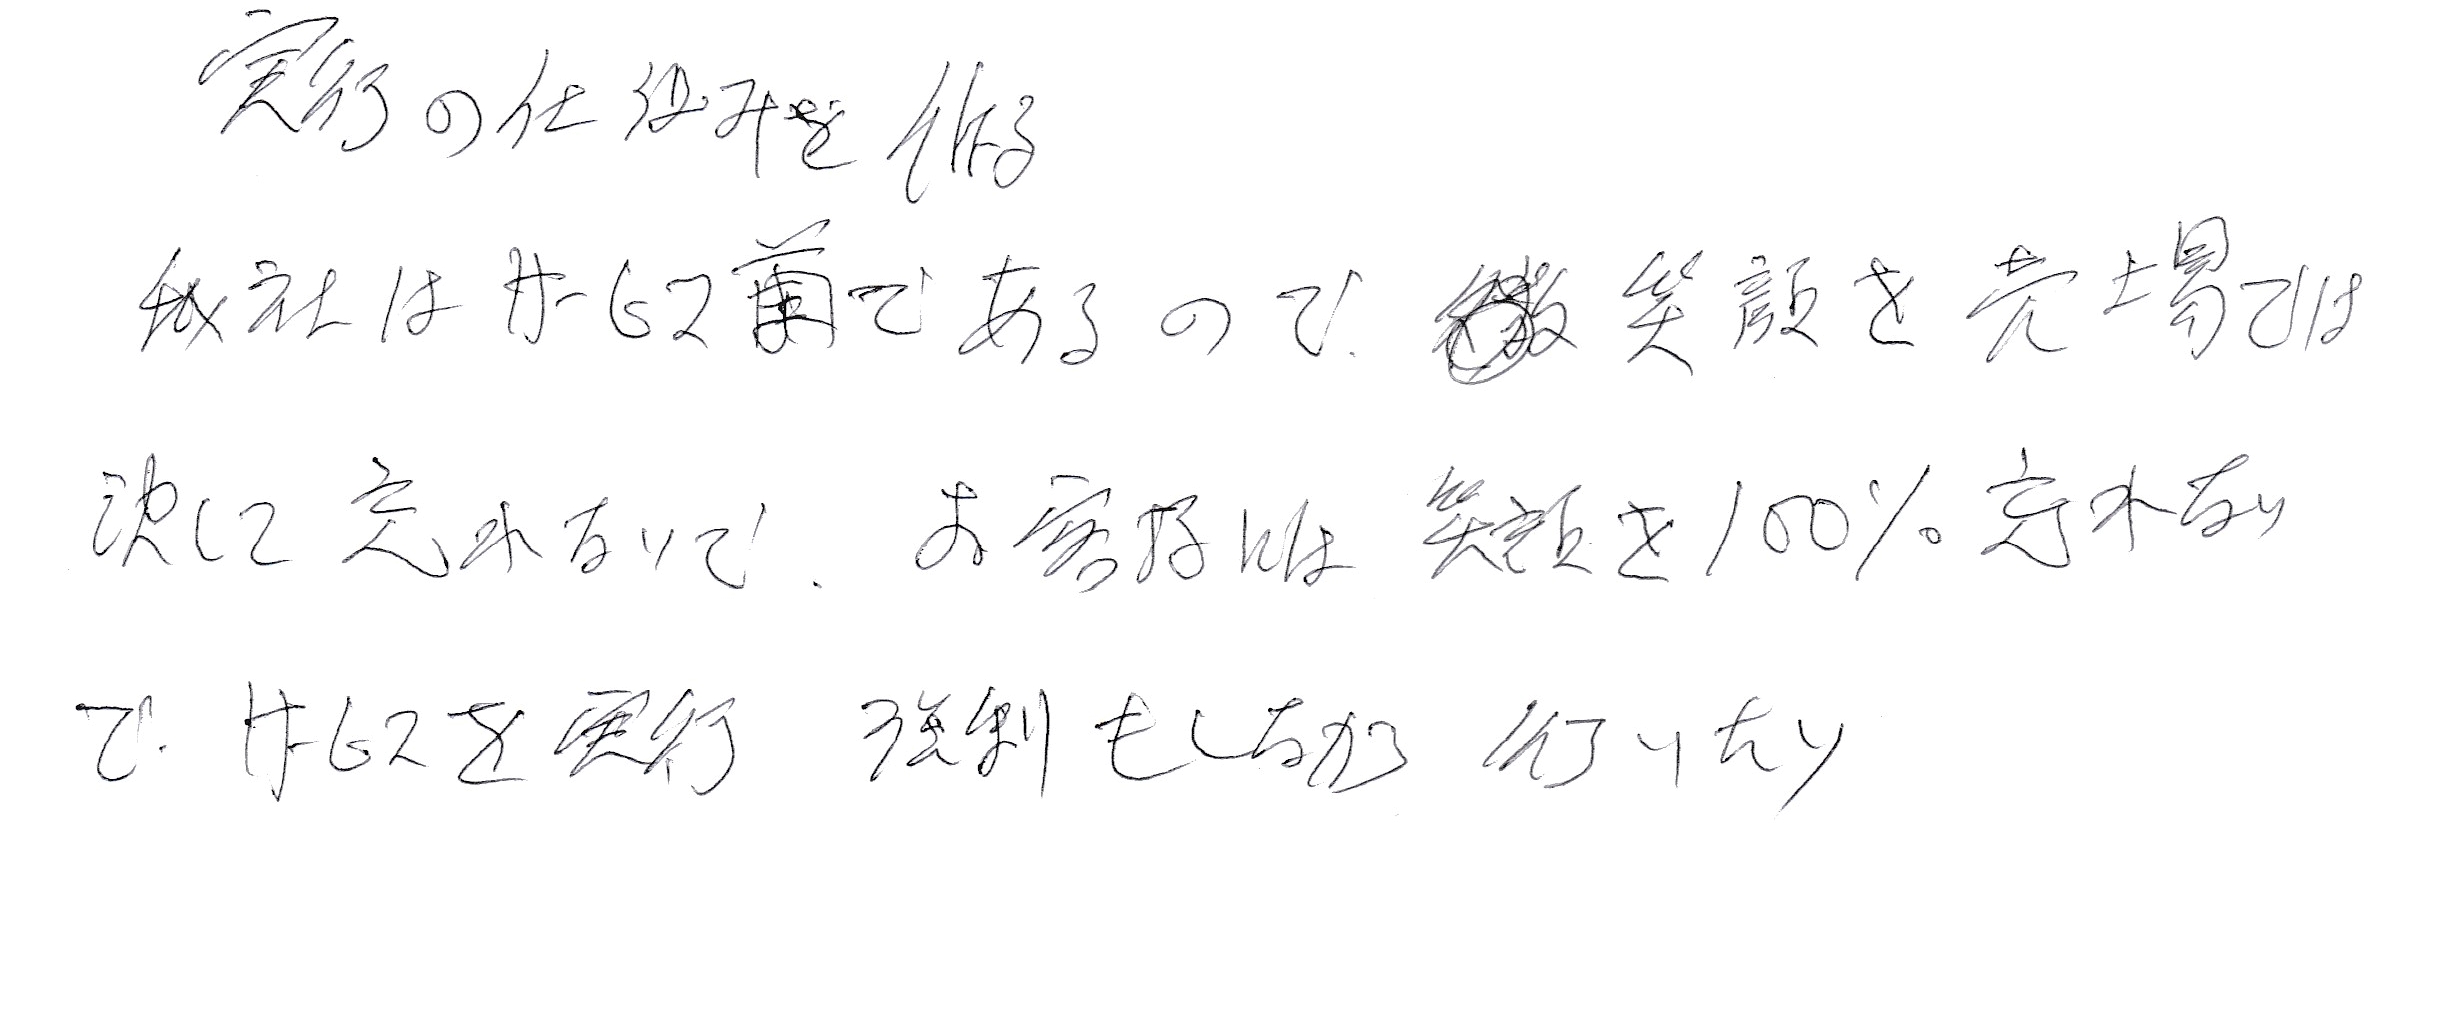 実行の仕組みを作る
我社はサービス業であるので、笑顔を売場では
決して忘れないで、お客様には笑顔を100%忘れない
で、サービスを実行 強制もしながら 行いたい